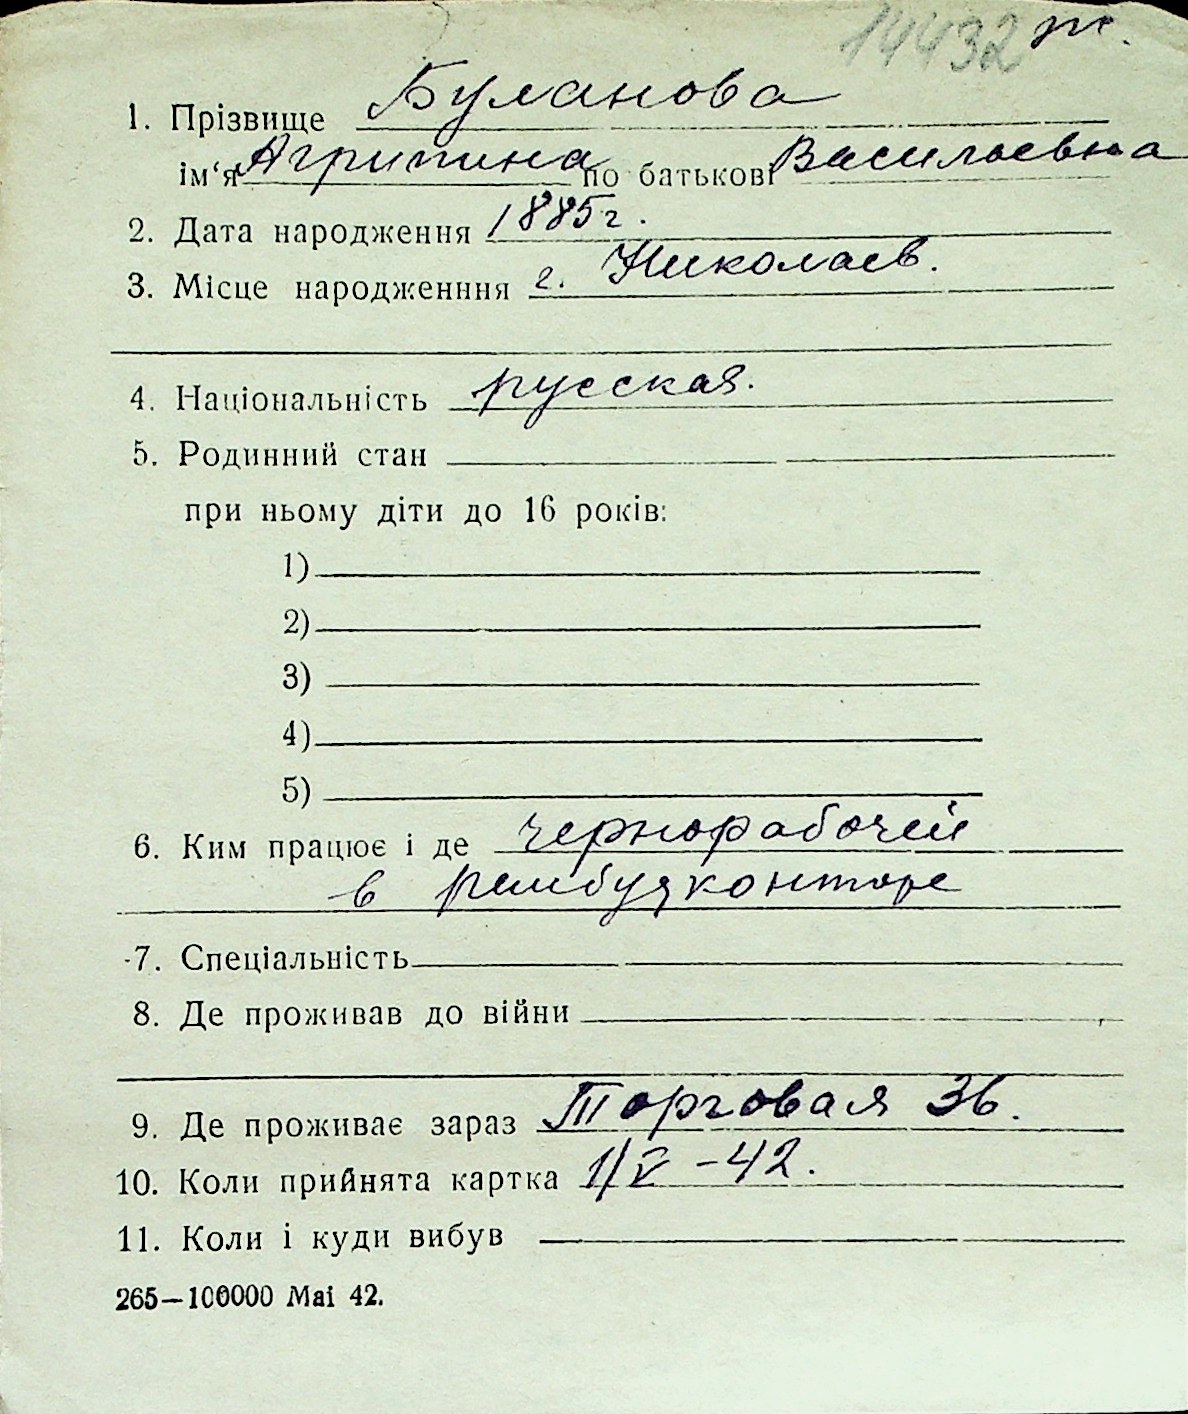 14432 ж.
1. Прізвище Буланова
ім'я Агрипина по батькові Василаевна
2. Дата народження 1885 г.
3. Місце народженння г. Николаев.
4. Національність русская.
5. Родинний стан
при ньому діти до 16 років:
1)
2)
3)
4)
5)
6. Ким працює і де чернорабочей
в рембудконторе
7. Спеціальність
8. Де проживав до війни
9. Де проживає зараз Торговая 36.
10. Коли прийнята картка 1/V -42.
11. Коли і куди вибув
265—100000 Mai 42.